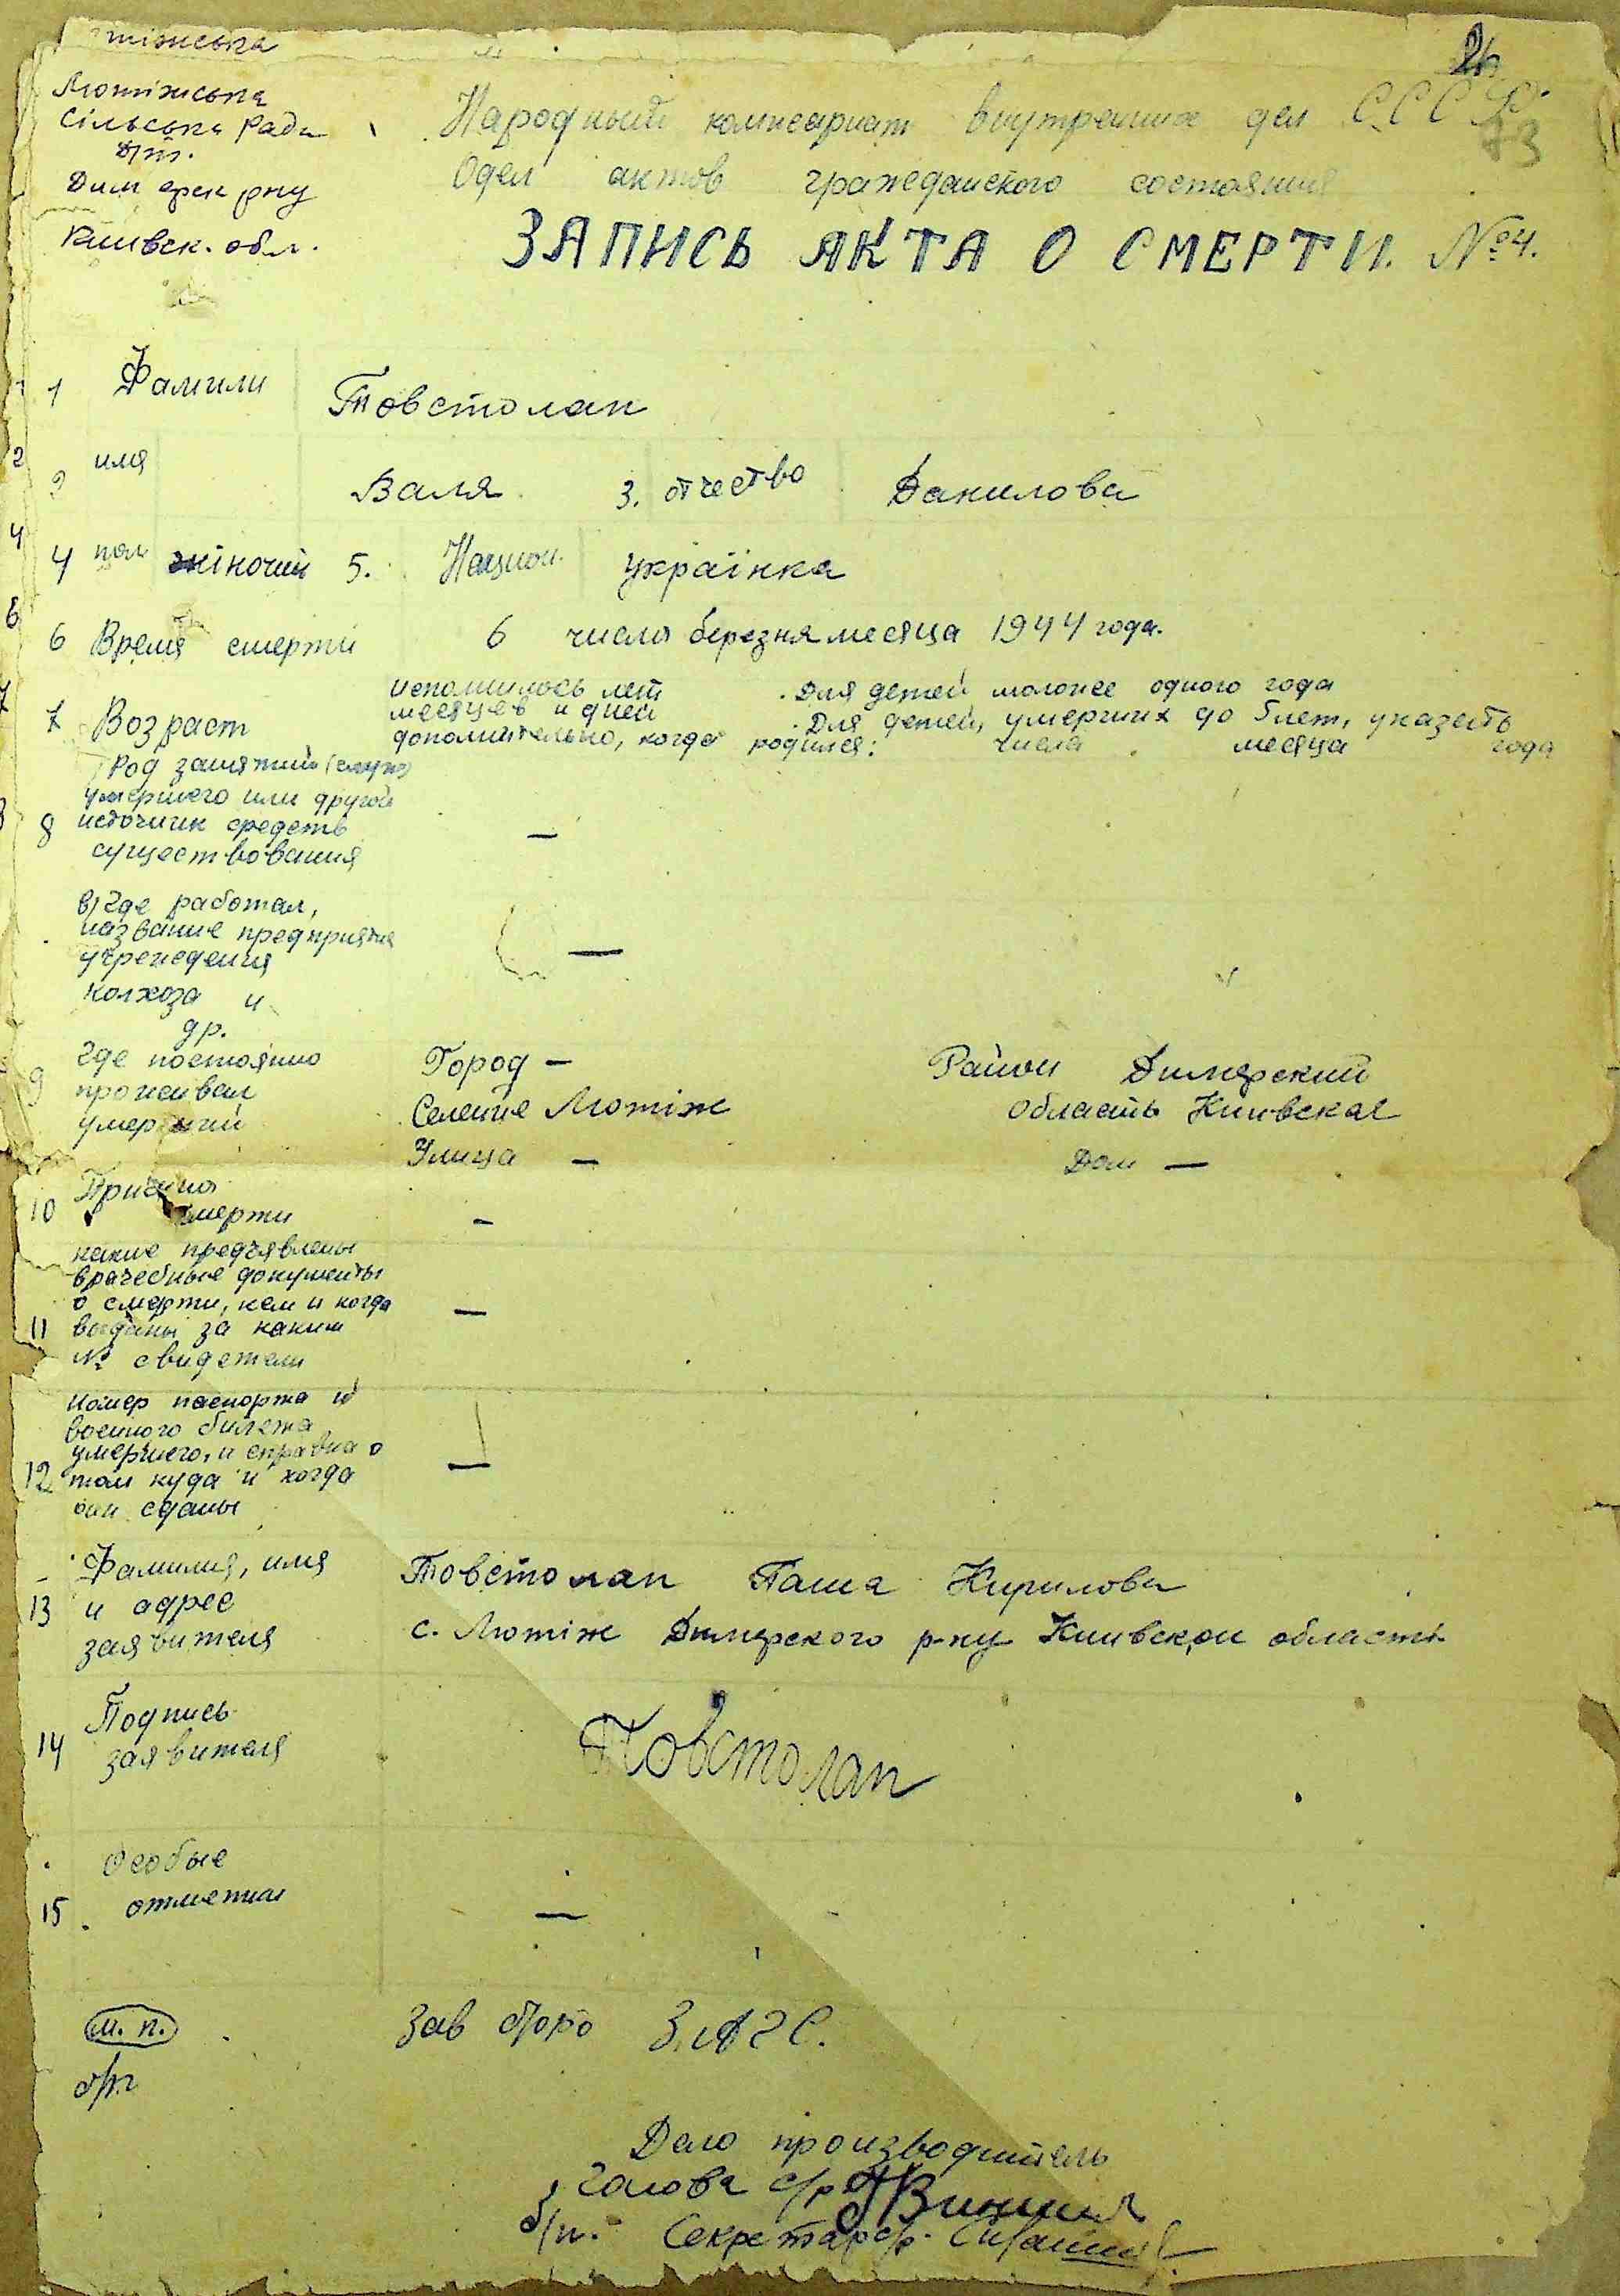 Лютіжська
Сільська Рада
Київск. обл.
24
73
Народный комисариат внутрених дел СССР.
Одел актов гражданского состояния
ЗАПИСЬ АКТА О СМЕРТИ. №4.
1 Фамили Товстолап
2 имя Валя 3. отчество Данилова
4 пол жіночий 5. Национ. українка
6 Время смерти 6 числа березня месяца 1944 года.
7 Возраст
исполнилось лет
месяцев и дней
Для детей моложее одного года
Для детей, умерших до 5 лет, указать
дополнительно, когда родился: числа месяца года
Род занятий
умершего или другой
8 источник средств —
существования
в) Где работал,
название предприятия —
учреждения
колхоза и
др.
9 Где постоянно
проживал
умерший
Город — Район Димерский
Селение Лютіж Область Киивская
Улица — Дом —
10 Причина
смерти —
какие предъявлены
врачебные документы
о смерти, кем и когда —
11 выданы за каким
№ свидетели
Номер паспорта и
военного билета
умершего, и справка о
12 том куда и когда —
они сданы
13 Фамилия, имя
и адрес
заявителя
Товстолап Паша Кирилова
с. Лютіж Димерского р-ну Киивской область
14 Подпись
заявителя
Товстолап
15 Особые
отметки —
м. п. Зав бюро ЗАГС.
Дело производитель
Голова с/р
Секретар с/р.